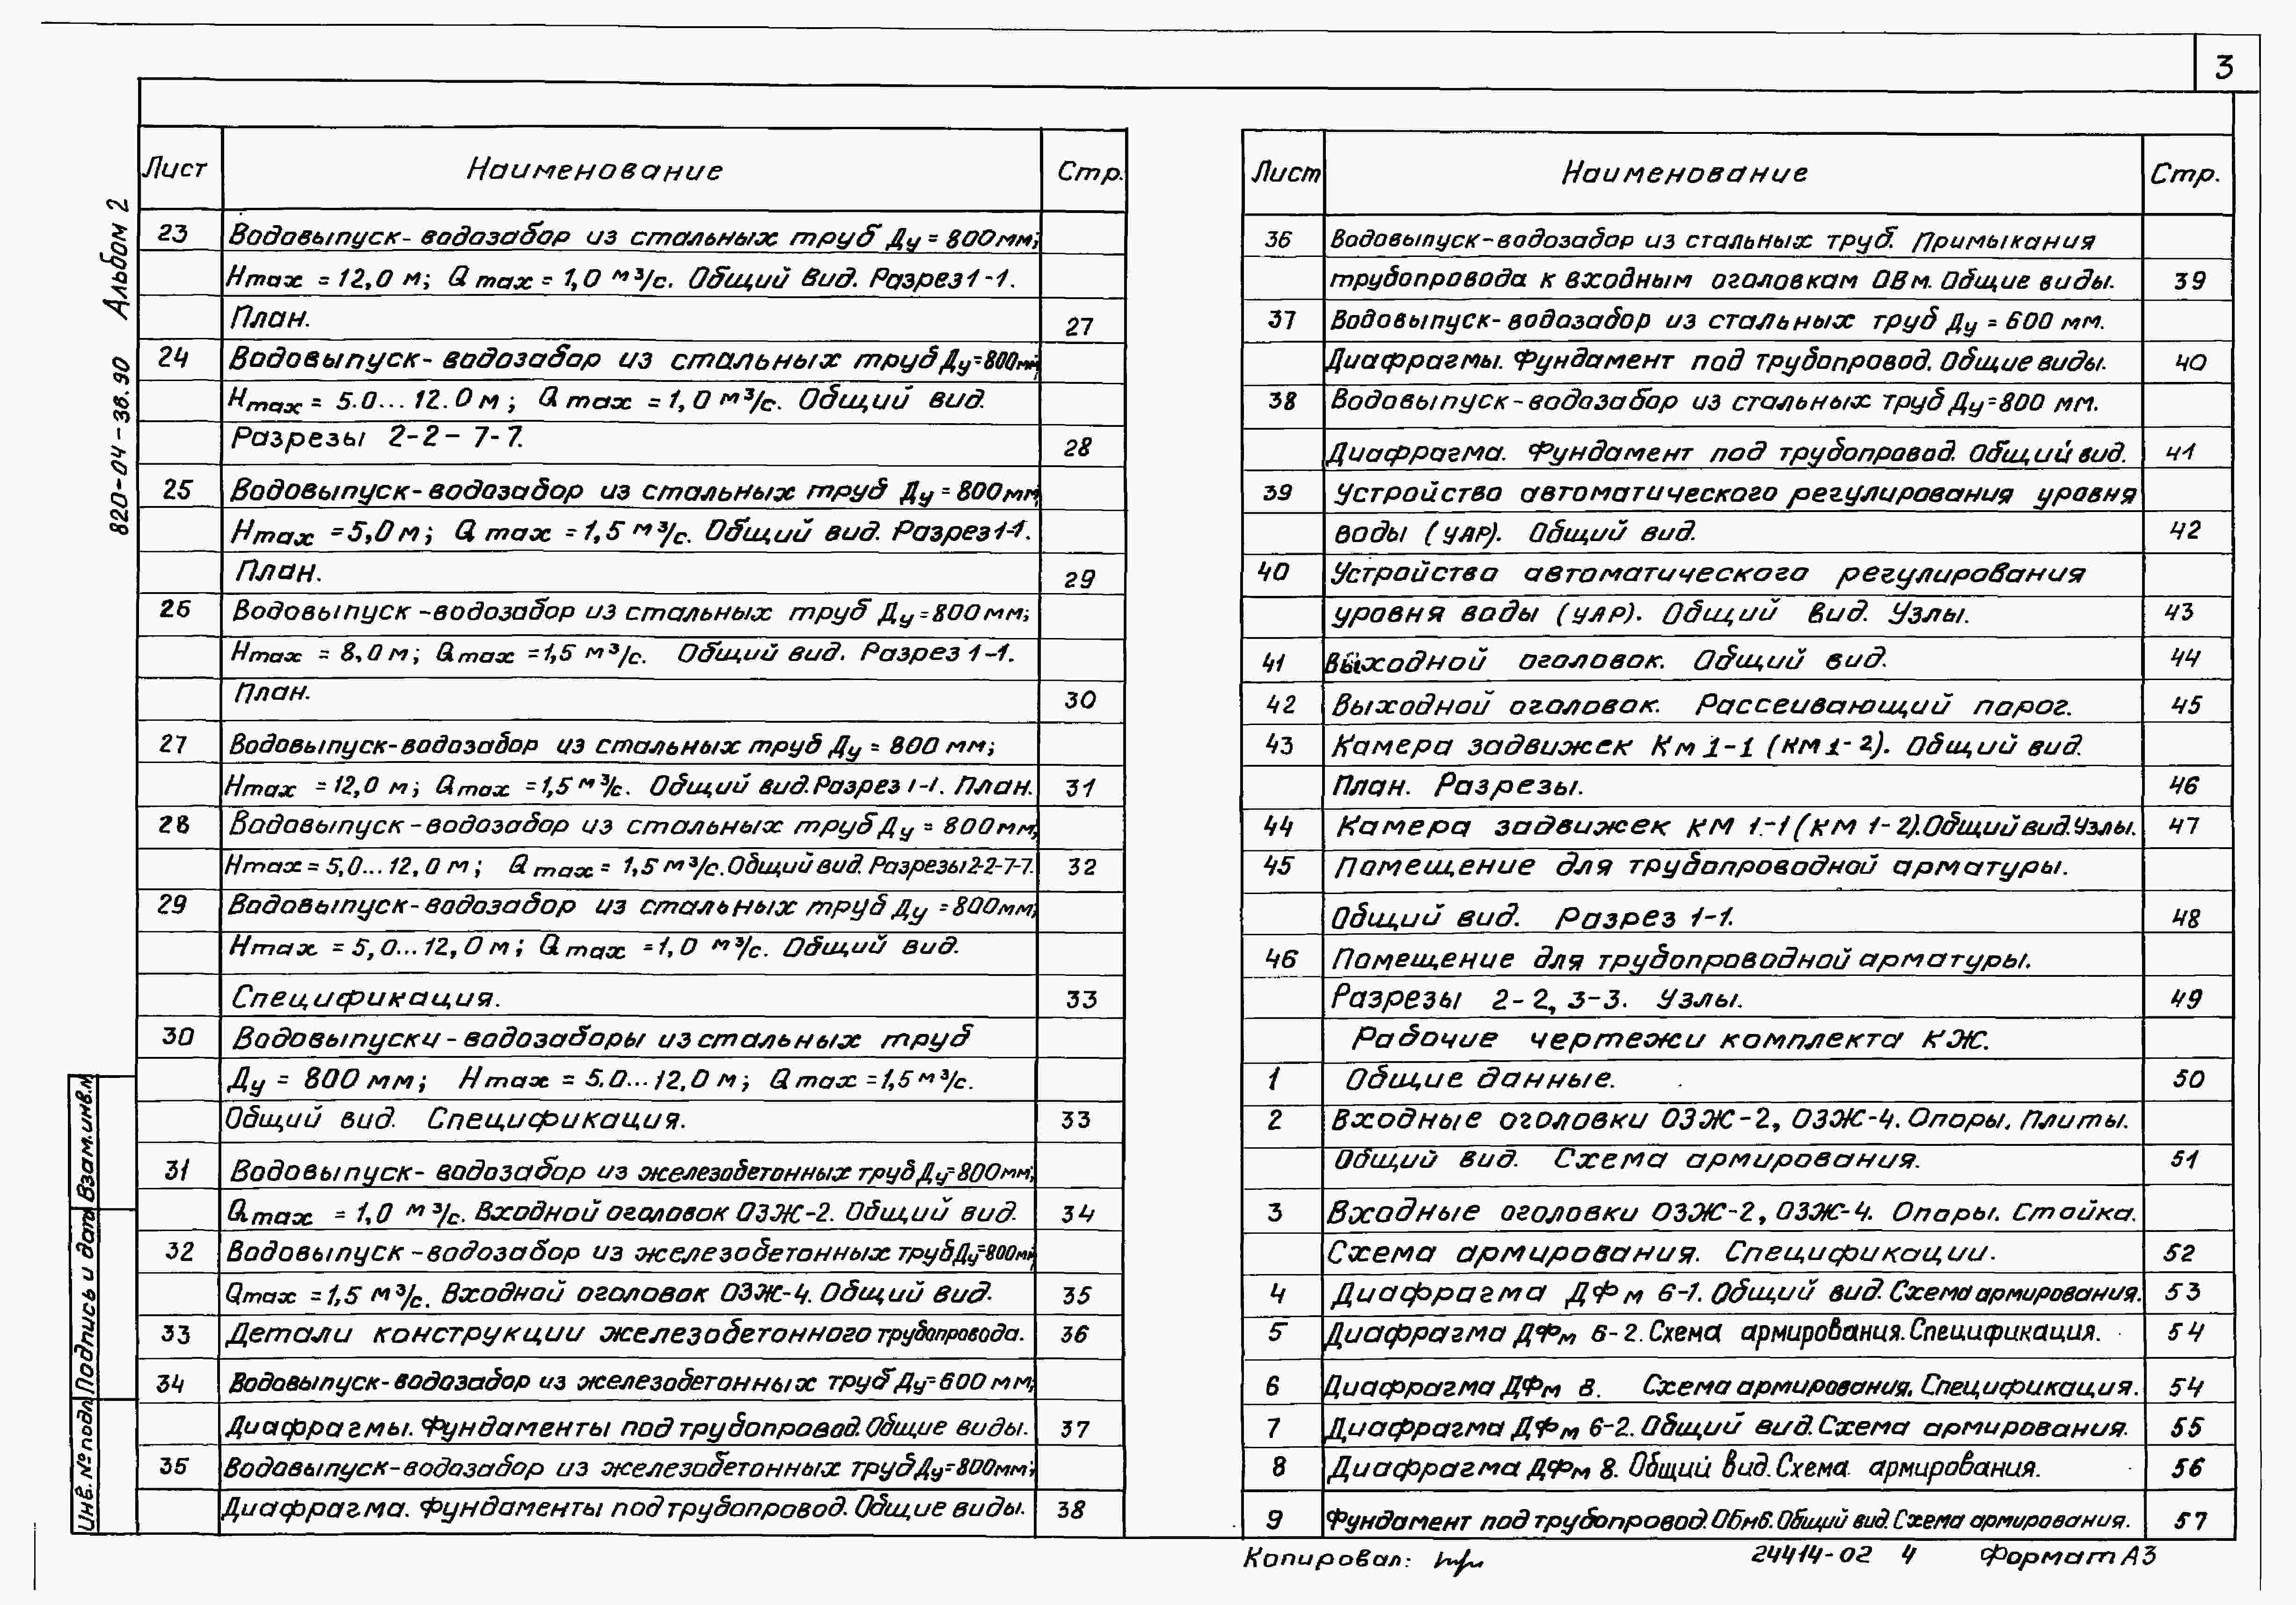 3
820-04-38.90 Альбом 2
Лист Наименование Стр.
23 Водовыпуск-водозабор из стальных труб Ду=800мм;
Hmax =12,0 м; Q max = 1,0 м³/с. Общий вид. Разрез 1-1.
План. 27
24 Водовыпуск-водозабор из стальных труб Ду=800мм;
Hmax = 5.0...12.0 м; Q max =1,0 м³/с. Общий вид.
Разрезы 2-2-7-7. 28
25 Водовыпуск-водозабор из стальных труб Ду=800мм;
Hmax =5,0 м; Q max =1,5 м³/с. Общий вид. Разрез 1-1.
План. 29
26 Водовыпуск-водозабор из стальных труб Ду=800мм;
Hmax = 8,0 м; Qmax =1,5 м³/с. Общий вид. Разрез 1-1.
План. 30
27 Водовыпуск-водозабор из стальных труб Ду = 800 мм;
Hmax =12,0 м; Qmax =1,5 м³/с. Общий вид. Разрез 1-1. План. 31
28 Водовыпуск-водозабор из стальных труб Ду = 800мм;
Hmax = 5,0...12,0 м; Q max = 1,5 м³/с. Общий вид. Разрезы 2-2-7-7. 32
29 Водовыпуск-водозабор из стальных труб Ду =800мм;
Hmax = 5,0...12,0 м; Q max =1,0 м³/с. Общий вид.
Спецификация. 33
30 Водовыпуски-водозаборы из стальных труб
Ду = 800 мм; Hmax = 5.0...12,0 м; Q max =1,5 м³/с.
Общий вид. Спецификация. 33
31 Водовыпуск-водозабор из железобетонных труб Ду=800мм;
Qmax = 1,0 м³/с. Входной оголовок ОЗЖ-2. Общий вид. 34
32 Водовыпуск-водозабор из железобетонных труб Ду=800мм;
Qmax =1,5 м³/с. Входной оголовок ОЗЖ-4. Общий вид. 35
33 Детали конструкции железобетонного трубопровода. 36
34 Водовыпуск-водозабор из железобетонных труб Ду=600 мм;
Диафрагмы. Фундаменты под трубопровод. Общие виды. 37
35 Водовыпуск-водозабор из железобетонных труб Ду=800мм;
Диафрагма. Фундаменты под трубопровод. Общие виды. 38
Лист Наименование Стр.
36 Водовыпуск-водозабор из стальных труб. Примыкания
трубопровода к входным оголовкам ОВм. Общие виды. 39
37 Водовыпуск-водозабор из стальных труб Ду = 600 мм.
Диафрагмы. Фундамент под трубопровод. Общие виды. 40
38 Водовыпуск-водозабор из стальных труб Ду=800 мм.
Диафрагма. Фундамент под трубопровод. Общий вид. 41
39 Устройство автоматического регулирования уровня
воды (УАР). Общий вид. 42
40 Устройство автоматического регулирования
уровня воды (УАР). Общий вид. Узлы. 43
41 Выходной оголовок. Общий вид. 44
42 Выходной оголовок. Рассеивающий порог. 45
43 Камера задвижек Км 1-1 (КМ 1-2). Общий вид.
План. Разрезы. 46
44 Камера задвижек КМ 1-1 (КМ 1-2). Общий вид. Узлы. 47
45 Помещение для трубопроводной арматуры.
Общий вид. Разрез 1-1. 48
46 Помещение для трубопроводной арматуры.
Разрезы 2-2, 3-3. Узлы. 49
Рабочие чертежи комплекта КЖ.
1 Общие данные. 50
2 Входные оголовки ОЗЖ-2, ОЗЖ-4. Опоры. Плиты.
Общий вид. Схема армирования. 51
3 Входные оголовки ОЗЖ-2, ОЗЖ-4. Опоры. Стойка.
Схема армирования. Спецификации. 52
4 Диафрагма ДФм 6-1. Общий вид. Схема армирования. 53
5 Диафрагма ДФм 6-2. Схема армирования. Спецификация. 54
6 Диафрагма ДФм 8. Схема армирования. Спецификация. 54
7 Диафрагма ДФм 6-2. Общий вид. Схема армирования. 55
8 Диафрагма ДФм 8. Общий вид. Схема армирования. 56
9 Фундамент под трубопровод. ОБм6. Общий вид. Схема армирования. 57
Инв. № подл. Подпись и дата Взам. инв. №
Копировал: 24414-02 4 Формат А3